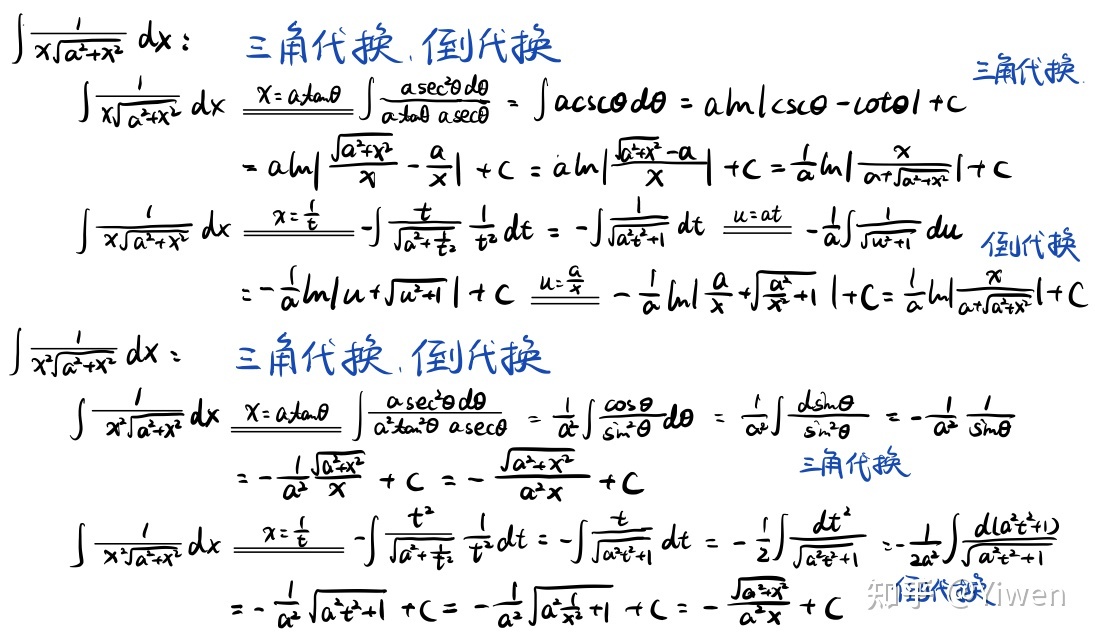 ∫ 1/(x√(a²+x²)) dx： 三角代换、倒代换
三角代换
∫ 1/(x√(a²+x²)) dx =(x=a tanθ)= ∫ (a sec²θ dθ)/(a tanθ a secθ) = ∫ a cscθ dθ = a ln|cscθ - cotθ| + C
= a ln|√(a²+x²)/x - a/x| + C = a ln|(√(a²+x²) - a)/x| + C = 1/a ln|x/(a+√(a²+x²))| + C
∫ 1/(x√(a²+x²)) dx =(x=1/t)= -∫ t/√(a²+1/t²) 1/t² dt = -∫ 1/√(a²t²+1) dt =(u=at)= -1/a ∫ 1/√(u²+1) du
倒代换
= -1/a ln|u+√(u²+1)| + C =(u=a/x)= -1/a ln|a/x + √(a²/x²+1)| + C = 1/a ln|x/(a+√(a²+x²))| + C
∫ 1/(x²√(a²+x²)) dx： 三角代换、倒代换
∫ 1/(x²√(a²+x²)) dx =(x=a tanθ)= ∫ (a sec²θ dθ)/(a² tan²θ a secθ) = 1/a² ∫ cosθ/sin²θ dθ = 1/a² ∫ dsinθ/sin²θ = -1/a² 1/sinθ
三角代换
= -1/a² √(a²+x²)/x + C = -√(a²+x²)/(a²x) + C
∫ 1/(x²√(a²+x²)) dx =(x=1/t)= -∫ t²/√(a²+1/t²) 1/t² dt = -∫ t/√(a²t²+1) dt = -1/2 ∫ dt²/√(a²t²+1) = -1/(2a²) ∫ d(a²t²+1)/√(a²t²+1)
倒代换
= -1/a² √(a²t²+1) + C = -1/a² √(a² 1/x² + 1) + C = -√(a²+x²)/(a²x) + C
知乎 @Yiwen